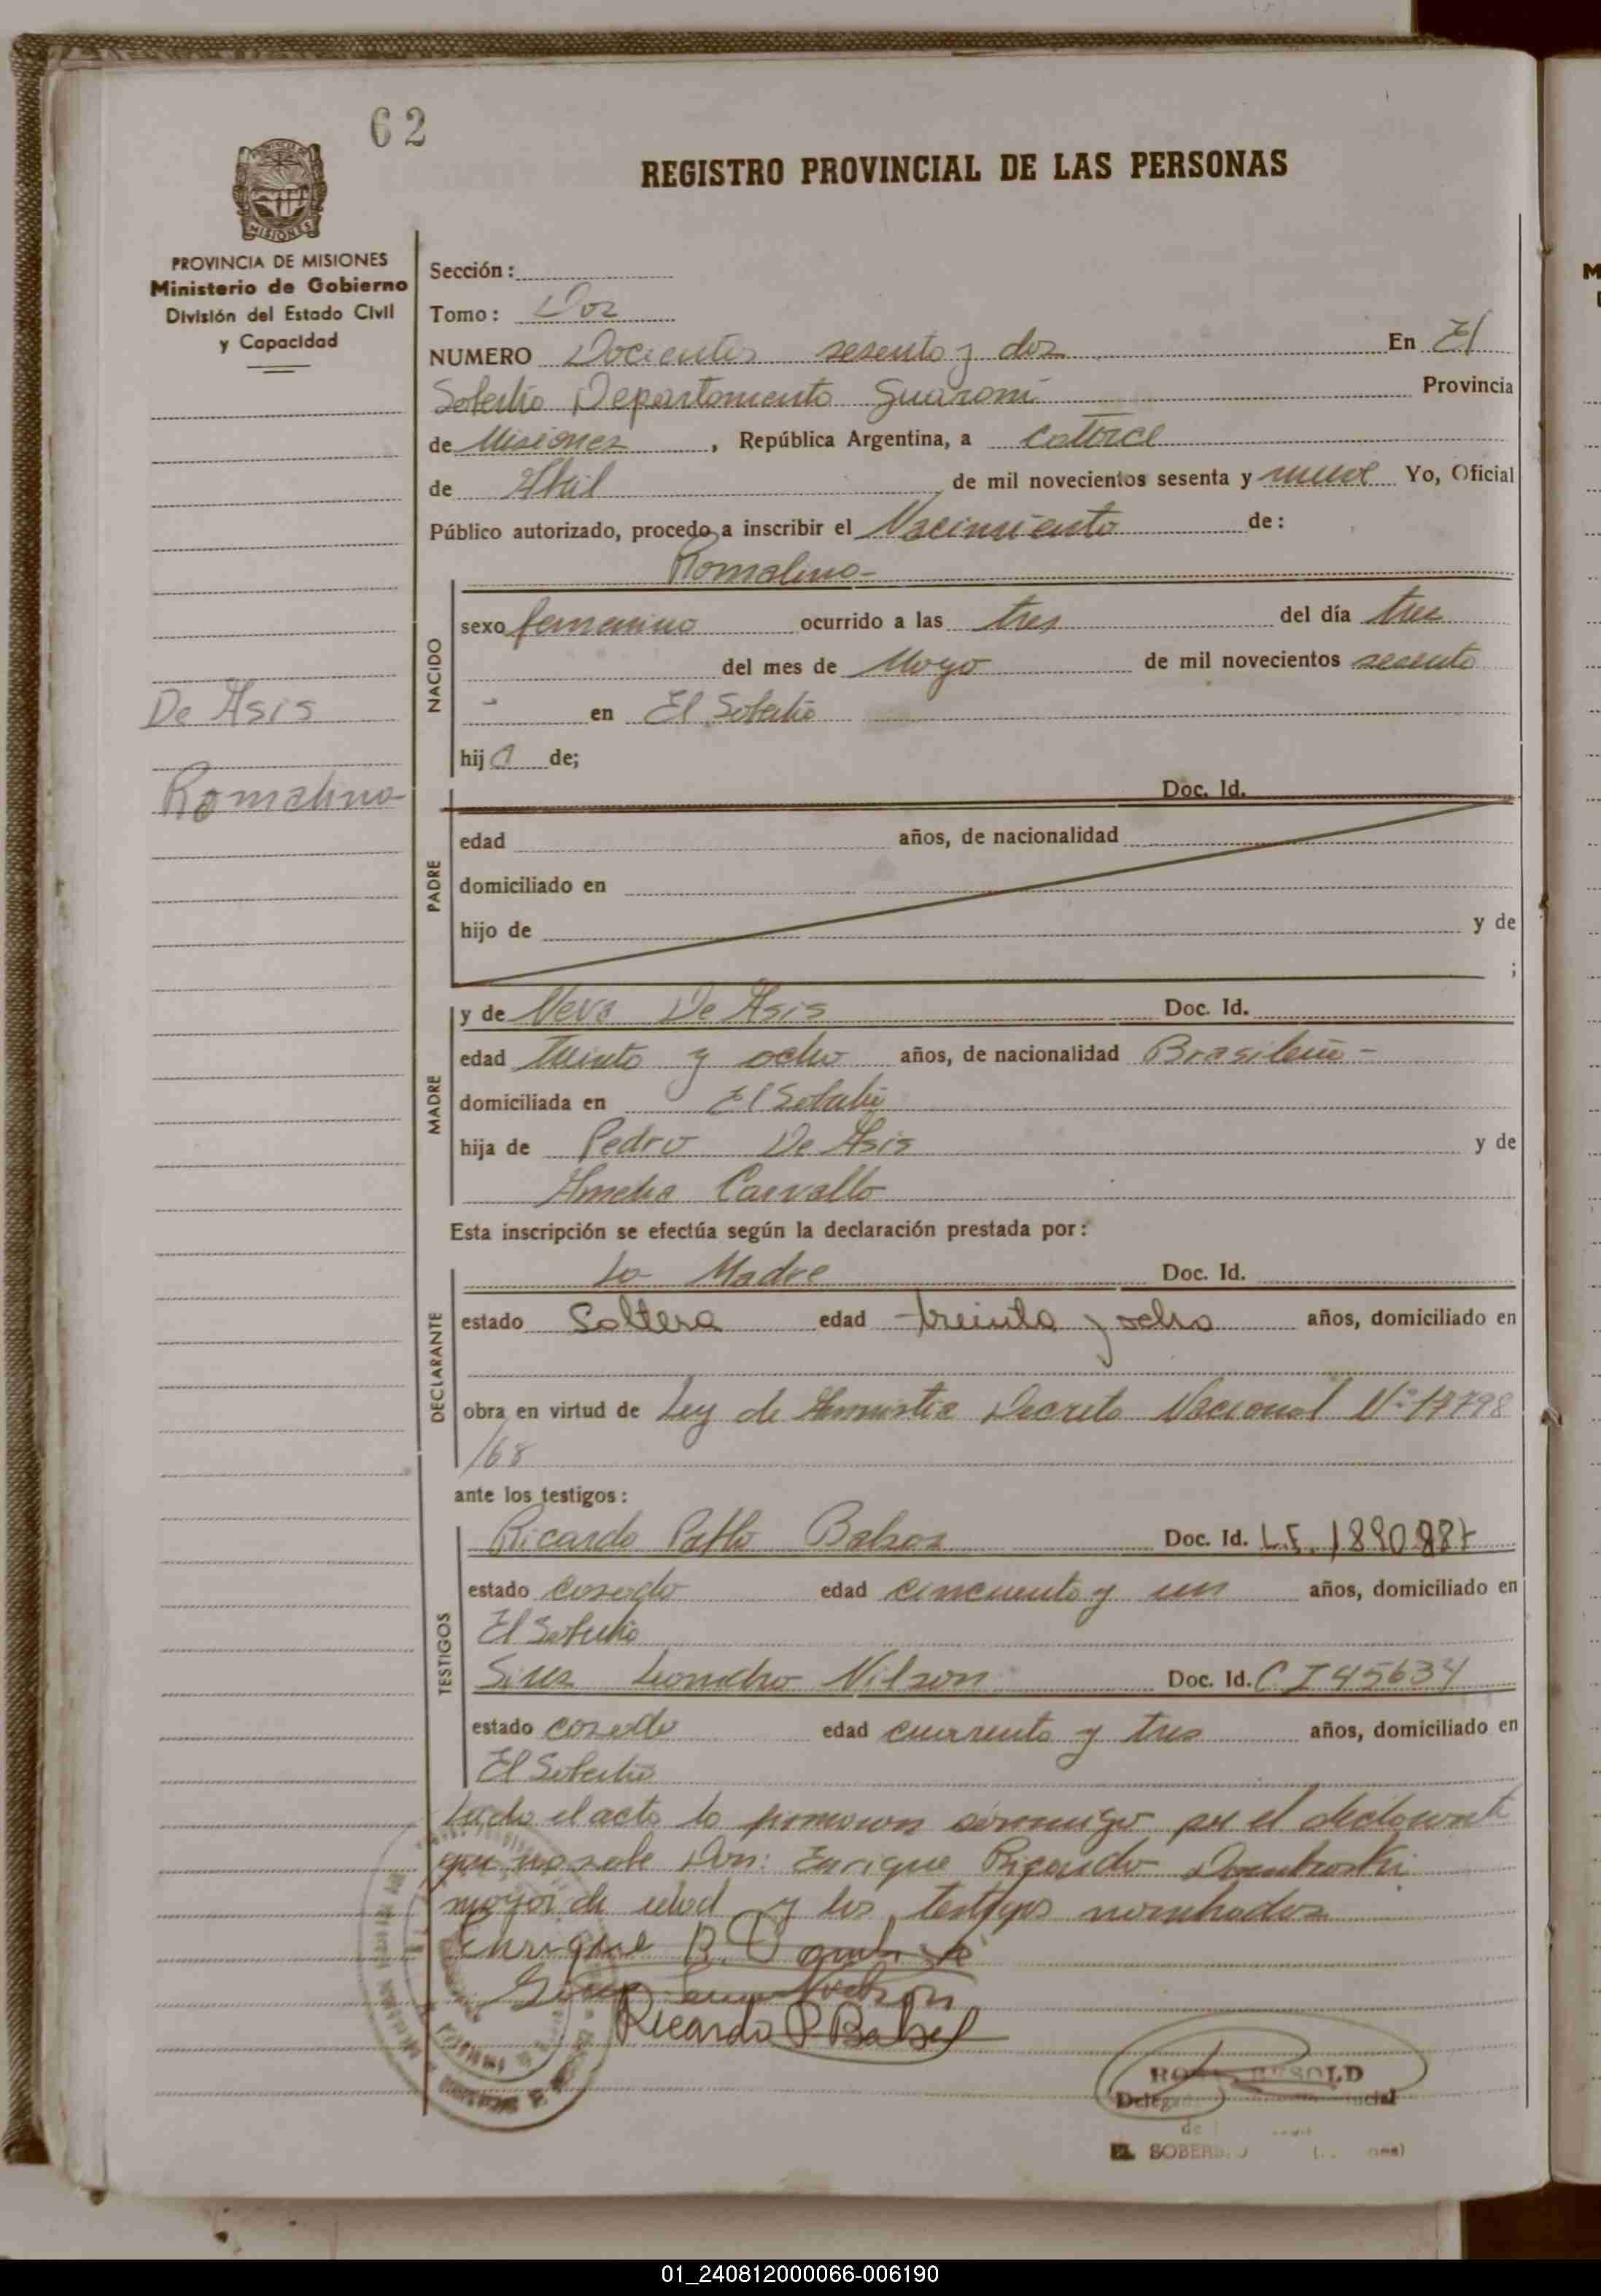 62
REGISTRO PROVINCIAL DE LAS PERSONAS
MISIONES
PROVINCIA DE MISIONES
Ministerio de Gobierno
División del Estado Civil
y Capacidad
De Asis
Romalino
Sección:
Tomo: Dos
NUMERO Docientos sesenta y dos En El
Soberbio Departamento Guaraní Provincia
de Misiones, República Argentina, a catorce
de Abril de mil novecientos sesenta y nueve Yo, Oficial
Público autorizado, procedo a inscribir el Nacimiento de:
Romalino-
NACIDO
sexo femenino ocurrido a las tres del día tres
del mes de Mayo de mil novecientos sesenta
- en El Soberbio
hija de;
Doc. Id.
PADRE
edad años, de nacionalidad
domiciliado en
hijo de y de
;
MADRE
y de Neva De Asis Doc. Id.
edad treinta y ocho años, de nacionalidad Brasileña -
domiciliada en El Soberbio
hija de Pedro De Asis y de
Amelia Carvallo
Esta inscripción se efectúa según la declaración prestada por:
DECLARANTE
La Madre Doc. Id.
estado Soltera edad treinta y ocho años, domiciliado en
obra en virtud de Ley de Amnistia Decreto Nacional Nº 17798
/68
ante los testigos:
TESTIGOS
Ricardo Pablo Doc. Id. L.E. 1890887
estado casado edad cincuenta y un años, domiciliado en
El Soberbio
Leonidro Nilson Doc. Id. C I 45634
estado casado edad cuarenta y tres años, domiciliado en
El Soberbio
Leida el acta la firmaron conmigo por el declarante
que no sabe Don: Enrique Ricardo Dombroski
mayor de edad y los testigos nombrados
Enrique R. Dombroski
Ricardo P Babel
EL SOBERBIO
01_240812000066-006190